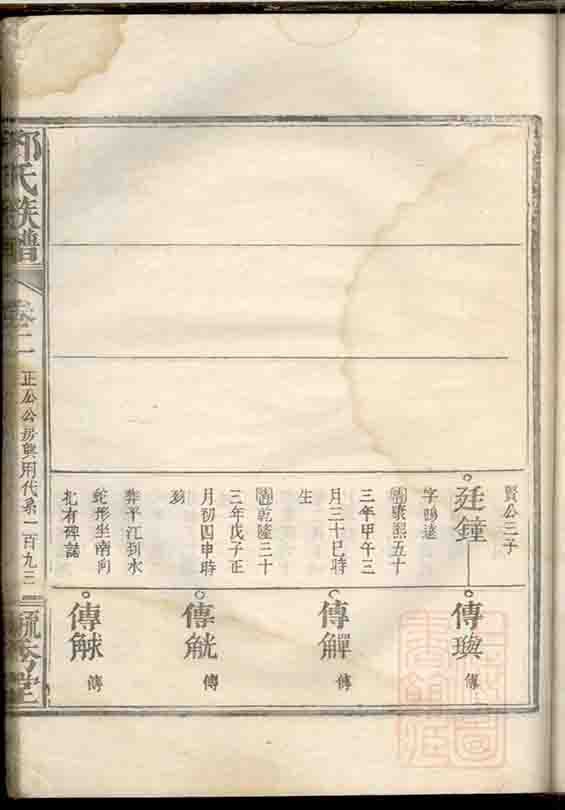 賢公三子
廷鐘
字鳴遠
清康熙五十
三年甲午三
月三十巳時
生
清乾隆三十
三年戊子正
月初四申時
歿
葬平江到水
蛇形坐南向
北有碑誌
傳璵 傳
傳觶 傳
傳觥 傳
傳觩 傳
氏族譜
卷二
正公公房興用代系一百九三
毓秀堂